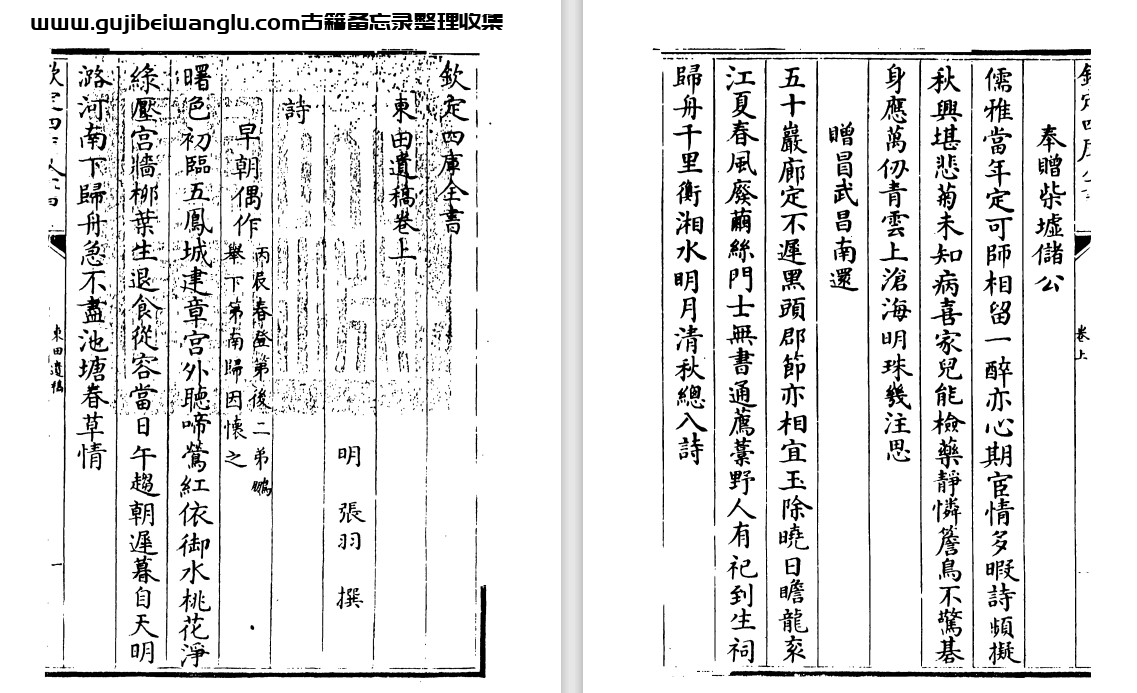 www.gujibeiwanglu.com古籍备忘录整理收集
欽定四庫全書
東田遺稿卷上
明 張羽 撰
詩
早朝偶作
丙辰春登第後二弟鵬
舉下第南歸因懷之
曙色初臨五鳳城建章宫外聽啼鶯紅依御水桃花淨
綠壓宫牆栁葉生退食從容當日午趨朝遲暮自天明
潞河南下歸舟急不盡池塘春草情
東田遺稿
一
卷上
奉贈柴墟儲公
儒雅當年定可師相留一醉亦心期宦情多暇詩頻擬
秋興堪悲菊未知病喜家兒能檢藥静憐簷鳥不驚碁
身應萬仞青雲上滄海明珠幾注思
贈昌武昌南還
五十巖廊定不遲黑頭郡節亦相宜玉除曉日瞻龍衮
江夏春風廢繭絲門士無書通薦藁野人有祀到生祠
歸舟千里衡湘水明月清秋總入詩